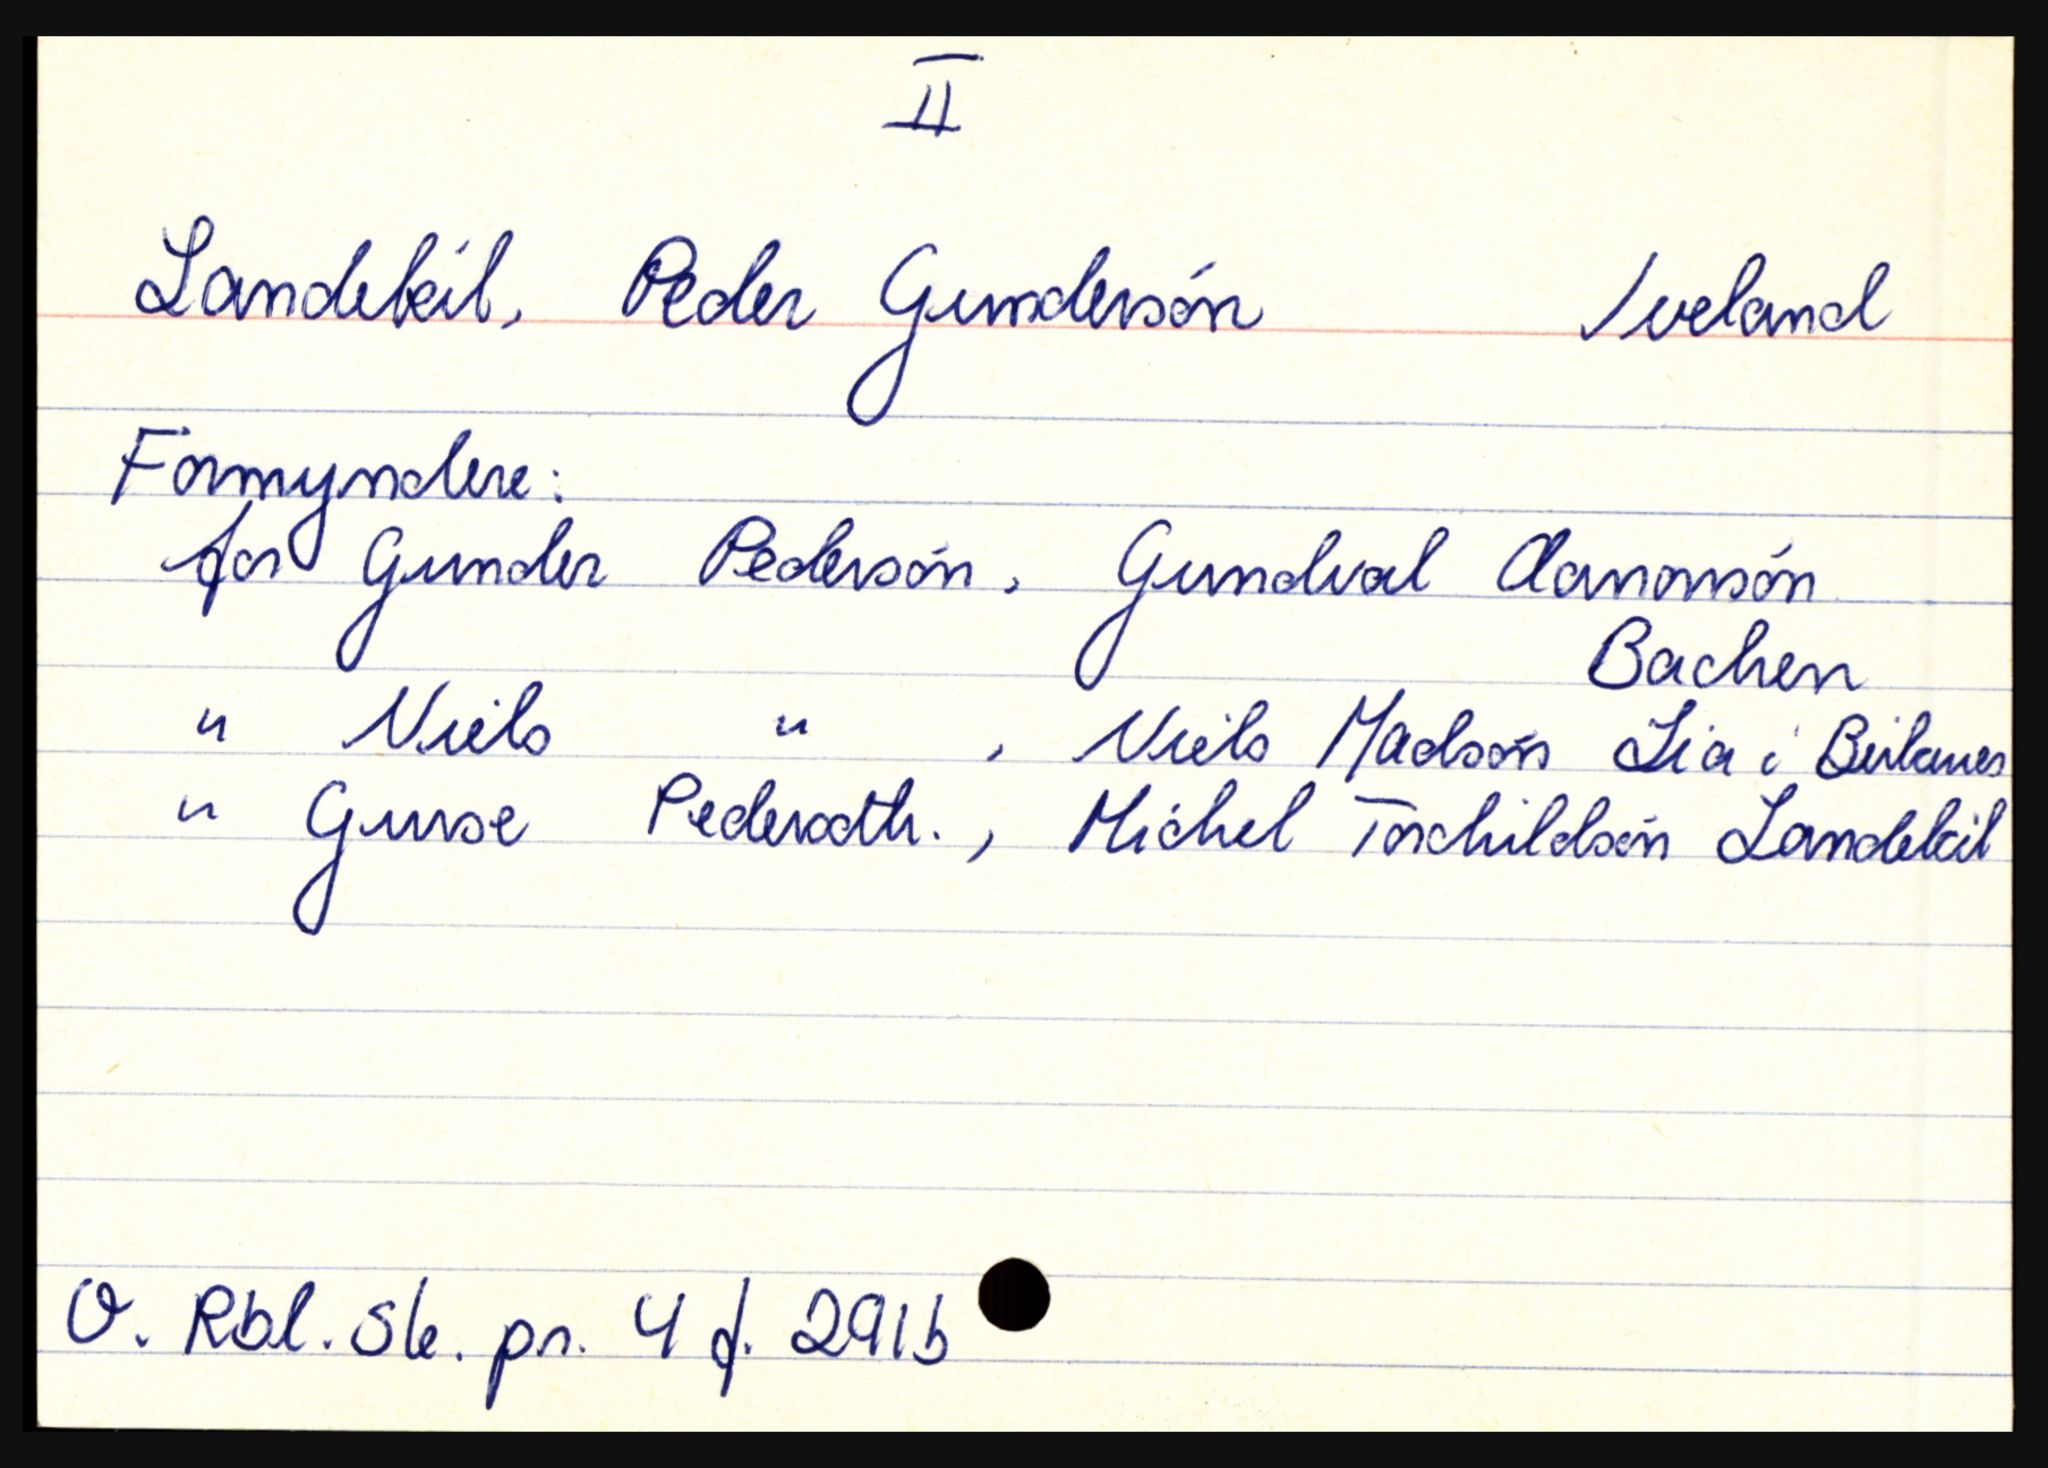 II
Landekil, Peder Gundersón Iveland
Formyndere:
for Gunder Pedersón, Gundval Aanonsón
Bachen
" Niels " , Niels Madsón Lia i Birkenes
" Guroe Pedersdtr. , Michel Torchildsón Landekil
O. Rbl. Sk. pr. 4 f. 291b